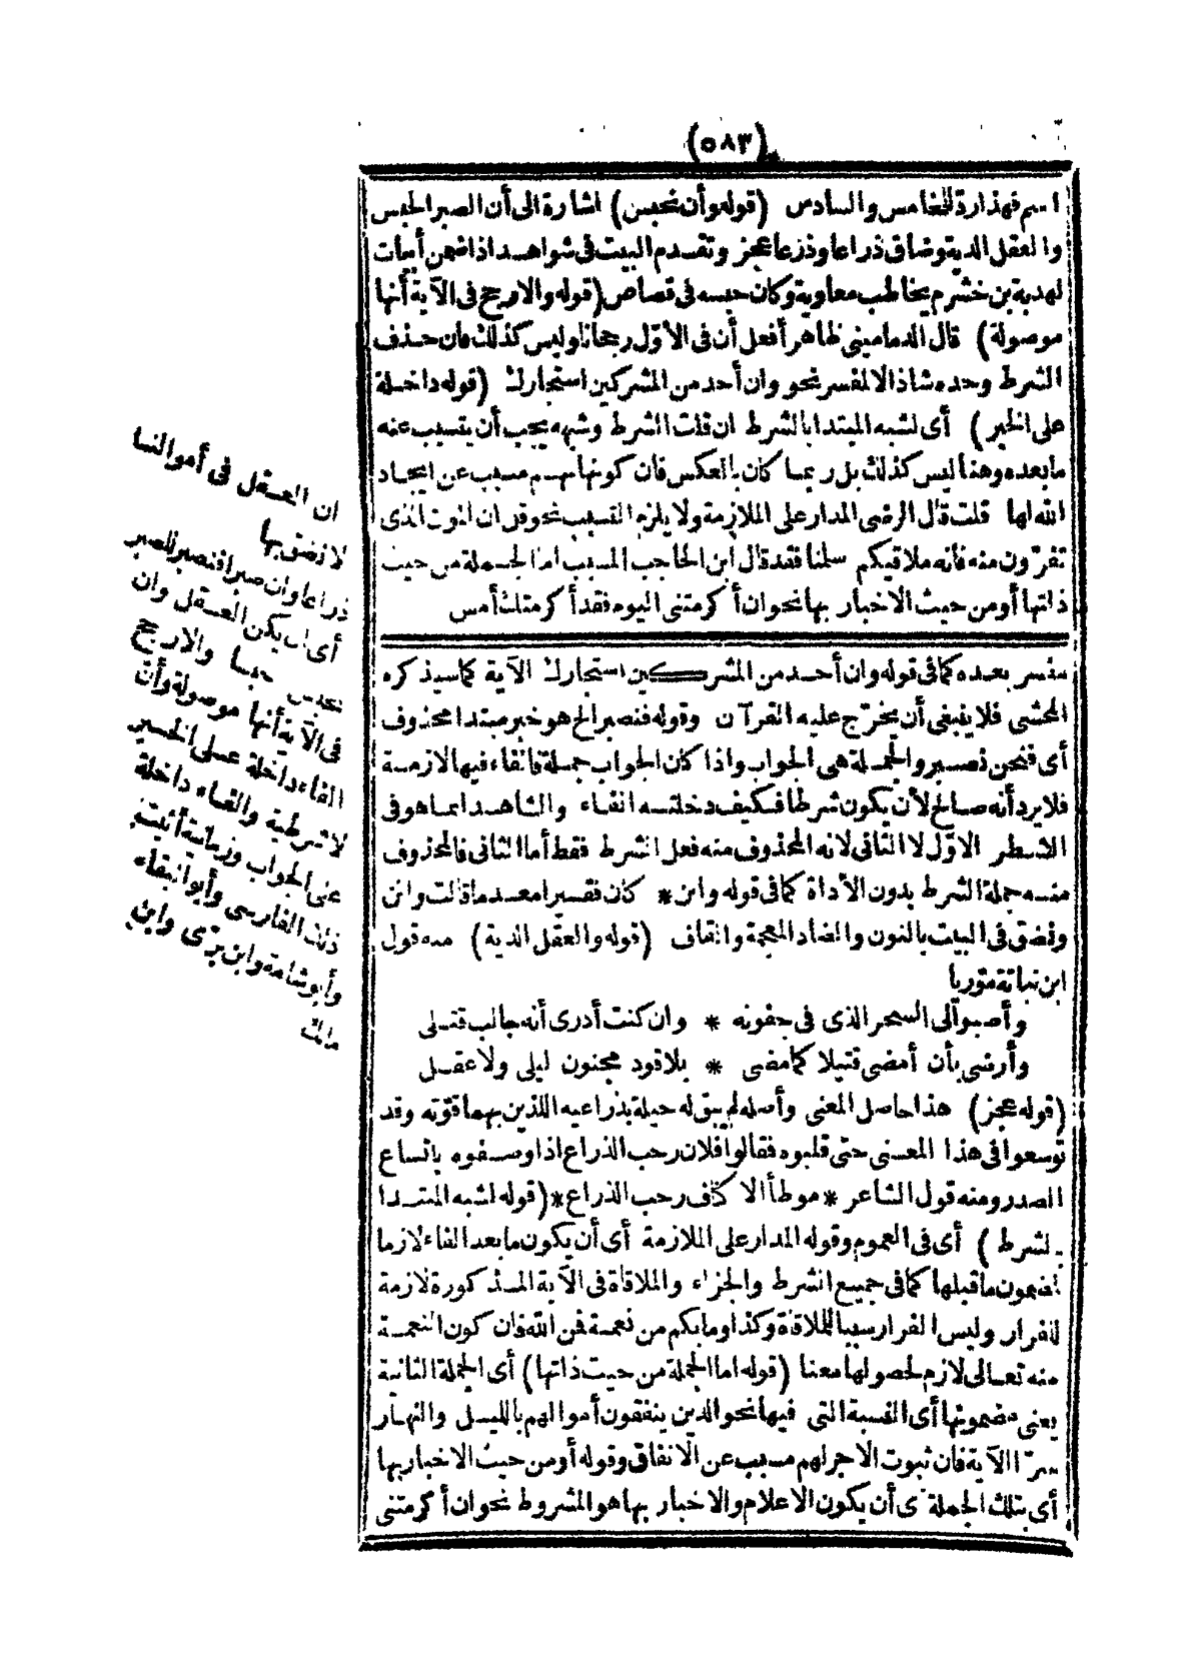 (٥٨٣)
اسم فهذا ردة للخامس والسادس (قوله وأن نحبس) اشارة الى أن الصبر الحبس
والعقل الدية وضاق ذراعا وذرعا عجز وتقدم البيت فى شواهد اذا ضمن أبيات
لهدبة بن خشرم يخاطب معاوية وكان حبسه فى قصاص (قوله والارجح فى الآية أنها
موصولة) قال الدمامينى ظاهر أفعل أن فى الاوّل رجحانا وليس كذلك فان حذف
الشرط وحده شاذ الا لمفسر نحو وان أحد من المشركين استجارك (قوله داخلة
على الخبر) أى لشبه المبتدا بالشرط ان قلت الشرط وشبهه يجب أن يتسبب عنه
ما بعده وهنا ليس كذلك بل ربما كان بالعكس فان كونها منهم مسبب عن ايجاد
الله لها قلت قال الرضى المدار على الملازمة ولا يلزم التسبب نحو قل ان الموت الذى
تفرّون منه فانه ملاقيكم سلمنا فقد قال ابن الحاجب المسبب اما الجملة من حيث
ذاتها أو من حيث الاخبار بها نحو ان أكرمتنى اليوم فقد أكرمتك أمس
مفسر بعده كما فى قوله وان أحد من المشركين استجارك الآية كما سيذكره
المحشى فلا ينبغى أن يخرّج عليه القرآن وقوله فنصبر الخ هو خبر مبتدا محذوف
أى فنحن نصبر والجملة هى الجواب واذا كان الجواب جملة فالفاء فيها لازمة
فلا يرد أنه صالح لأن يكون شرطا فكيف دخلته الفاء والشاهد انما هو فى
الشطر الاوّل لا الثانى لانه المحذوف منه فعل الشرط فقط أما الثانى فالمحذوف
منه جملة الشرط بدون الأداة كما فى قوله وان * كان فقيرا معدما قالت وانن
ونضق فى البيت بالنون والضاد المعجمة والقاف (قوله والعقل الدية) منه قول
ابن نباتة مورّيا
وأصبو الى السحر الذى فى جفونه * وان كنت أدرى أنه جالب قتلى
وأرضى بأن أمضى قتيلا كما مضى * بلا قود مجنون ليلى ولا عقل
(قوله عجز) هذا حاصل المعنى وأصله لم يبق له حيلة بذراعيه اللذين بهما قوّته وقد
توسعوا فى هذا المعنى حتى قلبوه فقالوا فلان رحب الذراع اذا وصفوه باتساع
الصدر ومنه قول الشاعر * موطأ الاكناف رحب الذراع * (قوله لشبه المبتدا
بالشرط) أى فى العموم وقوله المدار على الملازمة أى أن يكون ما بعد الفاء لازما
لمضمون ما قبلها كما فى جميع الشرط والجزاء والملاقاة فى الآية المذكورة لازمة
للفرار وليس الفرار سببا للملاقاة وكذا وما بكم من نعمة فمن الله فان كون النعمة
منه تعالى لازم لحصولها معنا (قوله اما الجملة من حيث ذاتها) أى الجملة الثانية
يعنى مضمونها أى النسبة التى فيها نحو الذين ينفقون أموالهم بالليل والنهار
سرّا الآية فان ثبوت الاجر لهم مسبب عن الانفاق وقوله أو من حيث الاخبار بها
أى بتلك الجملة أى أن يكون الاعلام والاخبار بها هو المشروط نحو ان أكرمتنى
ان العقل فى أموالنا
لا نضق بها
ذراعا وان صبرا فنصبر للصبر
أى ان يكن العقل وان
نحبس حبسا والارجح
فى الآية أنها موصولة وأن
الفاء داخلة على الخبر
لا شرطية والفاء داخلة
على الجواب
ذلك الفارسى وأبو البقاء
وأبو شامة وابن برّى وابن
مالك